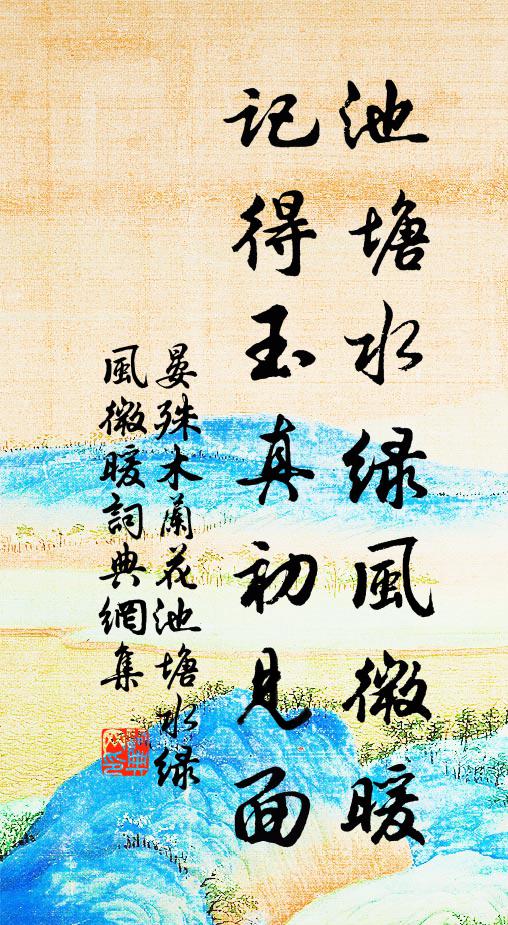 池塘水绿風微暖
記得玉真初見面
晏殊木蘭花池塘水绿
風微暖詞典網集